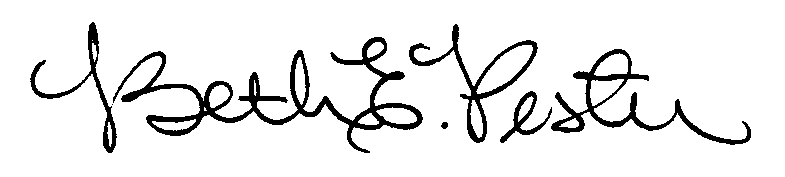 Beth E. Pester